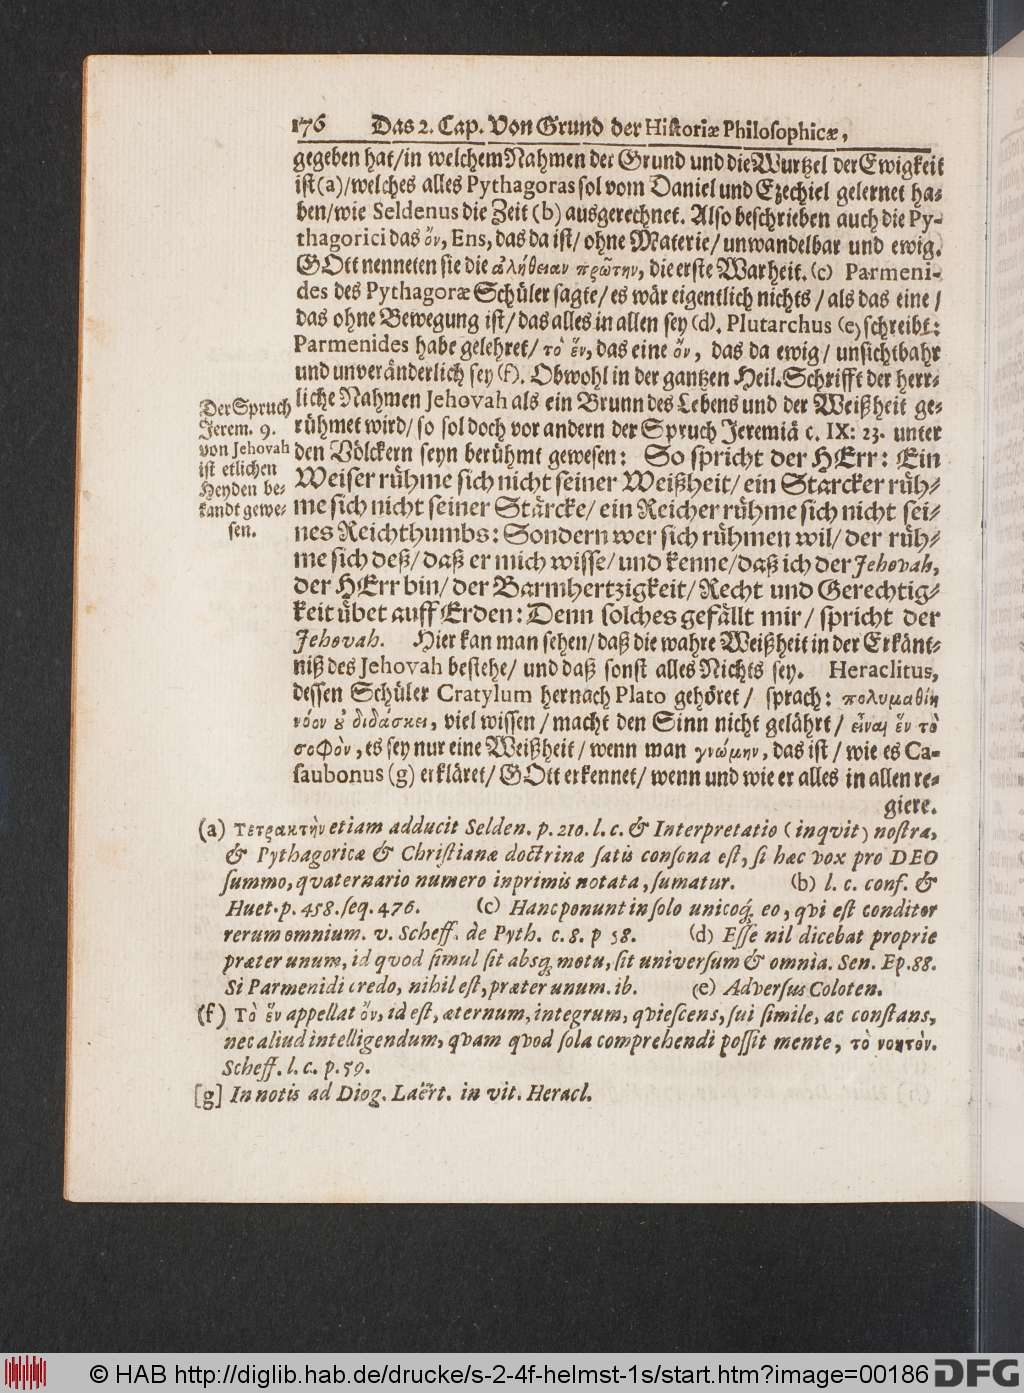 176 Das 2. Cap. Von Grund der Historiæ Philosophicæ,
gegeben hat/in welchem Nahmen der Grund und die Wurtzel der Ewigkeit
ist(a)/welches alles Pythagoras sol vom Daniel und Ezechiel gelernet ha-
ben/wie Seldenus die Zeit (b) ausgerechnet. Also beschrieben auch die Py-
thagorici das ὄν, Ens, das da ist/ohne Materie/unwandelbar und ewig.
GOtt nenneten sie die ἀλήθειαν πρῶτην, die erste Warheit. (c) Parmeni-
des des Pythagoræ Schüler sagte/es wär eigentlich nichts/als das eine/
das ohne Bewegung ist/das alles in allen sey (d). Plutarchus (e) schreibt:
Parmenides habe gelehret/ τὸ ἕν, das eine ὄν, das da ewig/unsichtbahr
und unveränderlich sey (f). Obwohl in der gantzen Heil. Schrifft der herr-
liche Nahmen Jehovah als ein Brunn des Lebens und der Weißheit ge-
rühmet wird/so sol doch vor andern der Spruch Jeremiä c. IX: 23. unter
den Völckern seyn berühmt gewesen: So spricht der HErr: Ein
Weiser rühme sich nicht seiner Weißheit/ein Starcker rüh-
me sich nicht seiner Stärcke/ein Reicher rühme sich nicht sei-
nes Reichthumbs: Sondern wer sich rühmen wil/der rüh-
me sich deß/daß er mich wisse/und kenne/daß ich der Jehovah,
der HErr bin/der Barmhertzigkeit/Recht und Gerechtig-
keit übet auff Erden: Denn solches gefällt mir/spricht der
Jehovah. Hier kan man sehen/daß die wahre Weißheit in der Erkänt-
niß des Jehovah bestehe/und daß sonst alles Nichts sey. Heraclitus,
dessen Schüler Cratylum hernach Plato gehöret/sprach: πολυμαθίη
νόον ȣ διδάσκει, viel wissen/macht den Sinn nicht gelährt/ εἶναι ἕν τὸ
σοφὸν, es sey nur eine Weißheit/wenn man γνώμην, das ist/wie es Ca-
saubonus (g) erkläret/GOtt erkennet/wenn und wie er alles in allen re-
giere.
Der Spruch
Jerem. 9.
von Jehovah
ist etlichen
Heyden be-
kandt gewe-
sen.
(a) Τετρακτὴν etiam adducit Selden. p. 210. l. c. & Interpretatio (inqvit) nostra,
& Pythagoricæ & Christianæ doctrinæ satis consona est, si hæc vox pro DEO
summo, qvaternario numero inprimis notata, sumatur. (b) l. c. conf. &
Huet. p. 458. seq. 476. (c) Hanc ponunt in solo unicoq; eo, qvi est conditor
rerum omnium. v. Scheff. de Pyth. c. 8. p 58. (d) Esse nil dicebat proprie
præter unum, id qvod simul sit absq; motu, sit universum & omnia. Sen. Ep. 88.
Si Parmenidi credo, nihil est, præter unum. ib. (e) Adversus Coloten.
(f) Τὸ ἕν appellat ὄν, id est, æternum, integrum, qviescens, sui simile, ac constans,
nec aliud intelligendum, qvam qvod sola comprehendi possit mente, τὸ νοητὸν.
Scheff. l. c. p. 59.
[g] In notis ad Diog. Laërt. in vit. Heracl.
© HAB http://diglib.hab.de/drucke/s-2-4f-helmst-1s/start.htm?image=00186 DFG